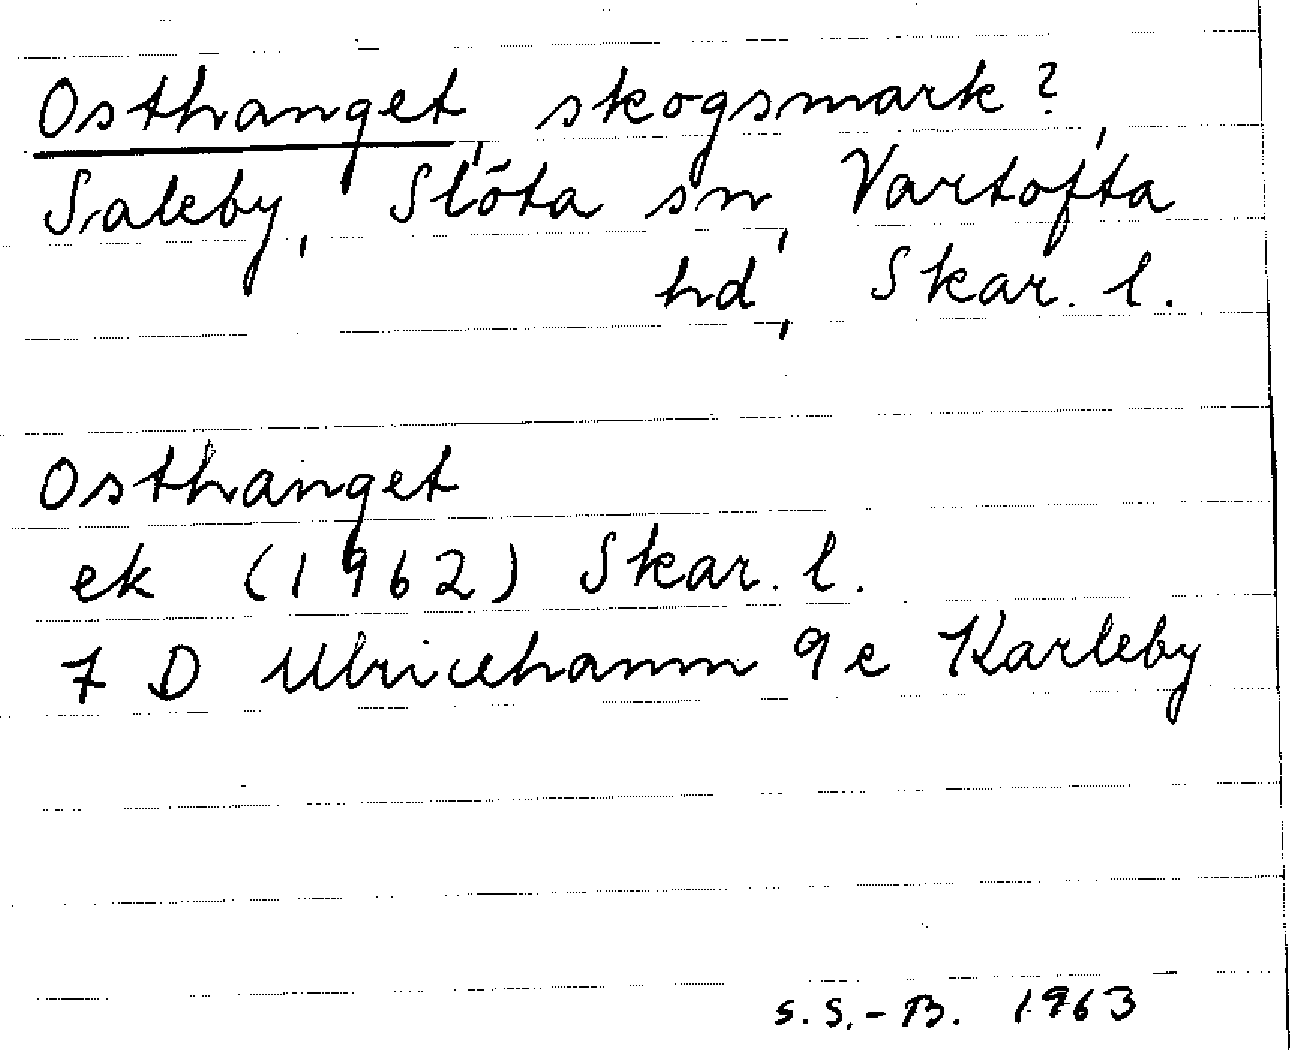 Osthanget, skogsmark?,
Saleby, Slöta sn, Vartofta
hd, Skar. l.
Osthanget
ek (1962) Skar. l.
7 D Ulricehamn 9e Karleby
S.S.-B. 1963